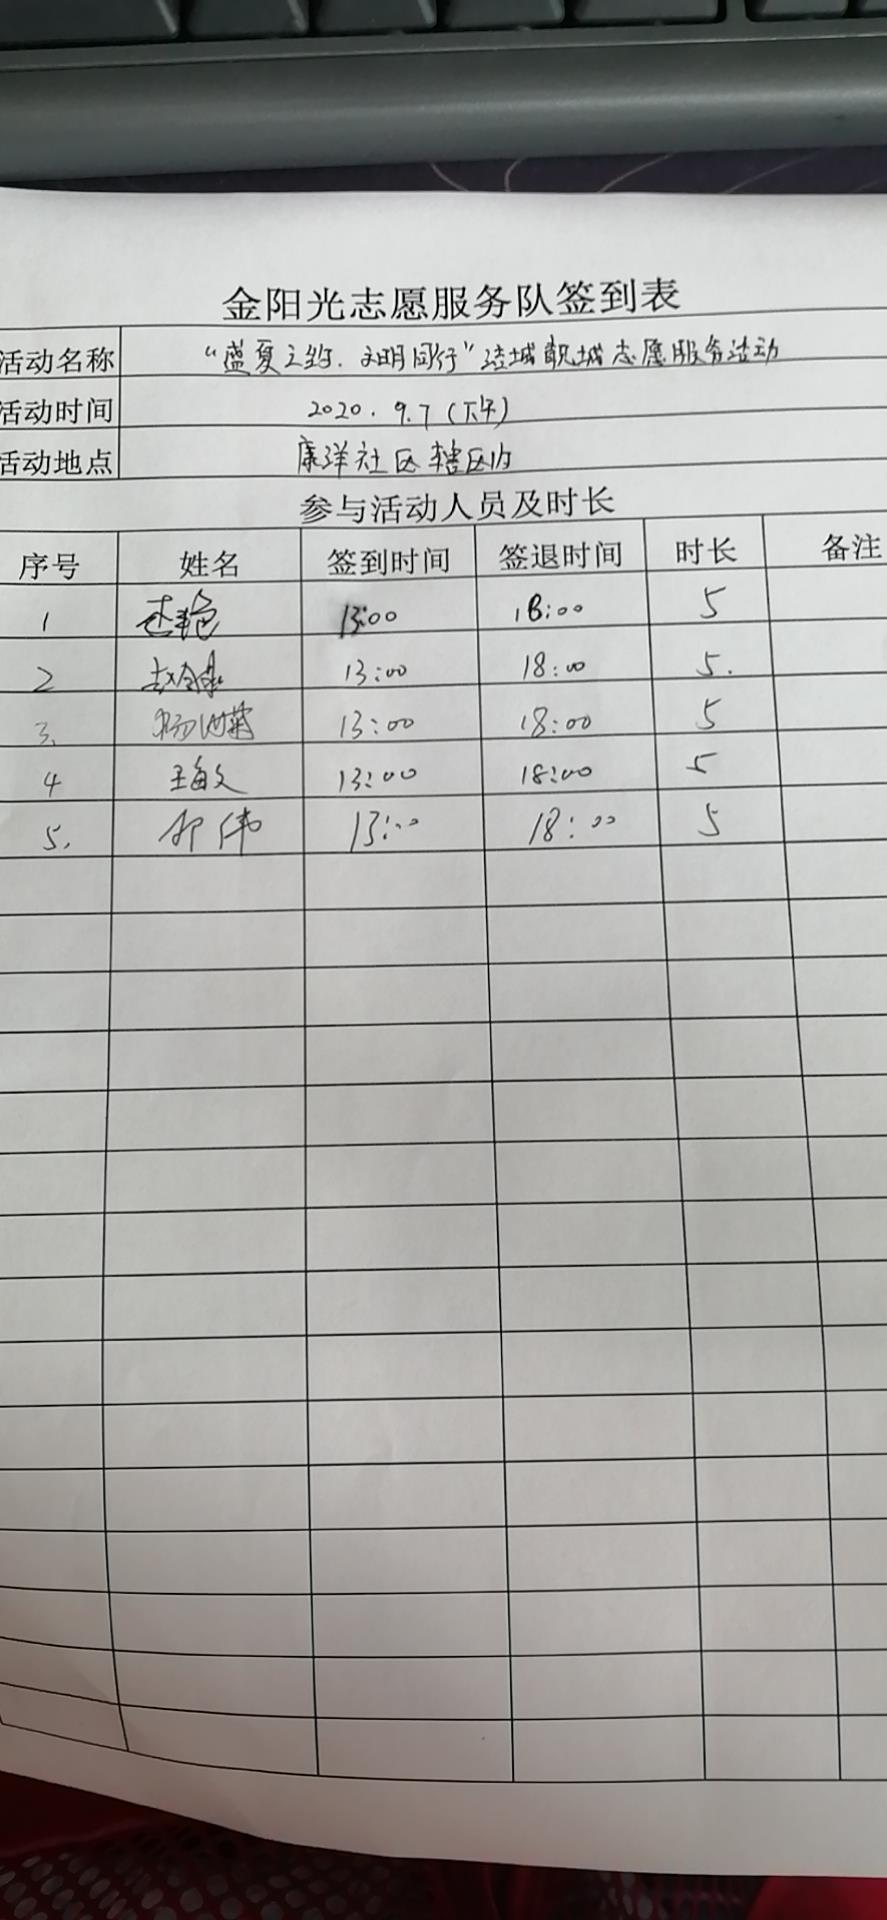 金阳光志愿服务队签到表
活动名称 “盛夏之约.文明同行” 志愿服务活动
活动时间 2020.9.7(下午)
活动地点 康洋社区辖区内
参与活动人员及时长
序号 姓名 签到时间 签退时间 时长 备注
1 13:00 18:00 5
2 13:00 18:00 5.
3. 13:00 18:00 5
4 王海文 13:00 18:00 5
5. 伟 13:00 18:00 5